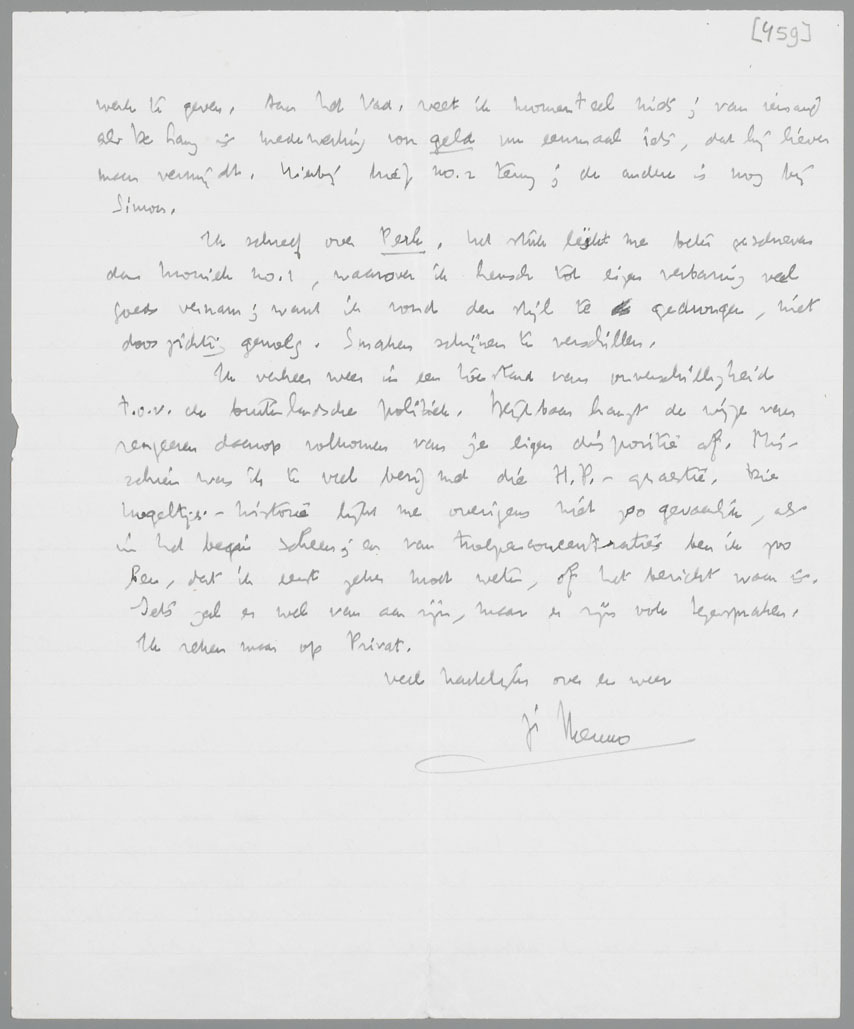 [459]
werk te geven. Aan het Vad. weet ik momenteel niets; van iemand
als De Lang is medewerking voor geld nu eenmaal iets, dat hij liever
maar vermijdt. Hierbij brief no. 2 terug; de andere is nog bij
Simon.
Ik schreef over Perk. Het stuk lijkt me beter geschreven
dan kroniek no. 1, waarover ik heusch tot eigen verbazing veel
goeds vernam; want ik vond den stijl te gedrongen, niet
doorzichtig genoeg. Smaken schijnen te verschillen.
Ik verkeer weer in een toestand van onverschilligheid
t.o.v. de buitenlandsche politiek. Blijkbaar hangt de wijze van
reageeren daarop volkomen van je eigen dispositie af. Mis-
schien was ik te veel bezig met die H.P.-quaestie. Die
-historie lijkt me overigens niet zoo gevaarlijk, als
in het begin scheen; en van troepenconcentraties ben ik zoo
beu, dat ik eerst zeker moet weten, of het bericht waar is.
Iets zal er wel van aan zijn, maar er zijn ook tegenspraken.
Ik reken maar op Privat.
veel hartelijks over en weer
je Menno